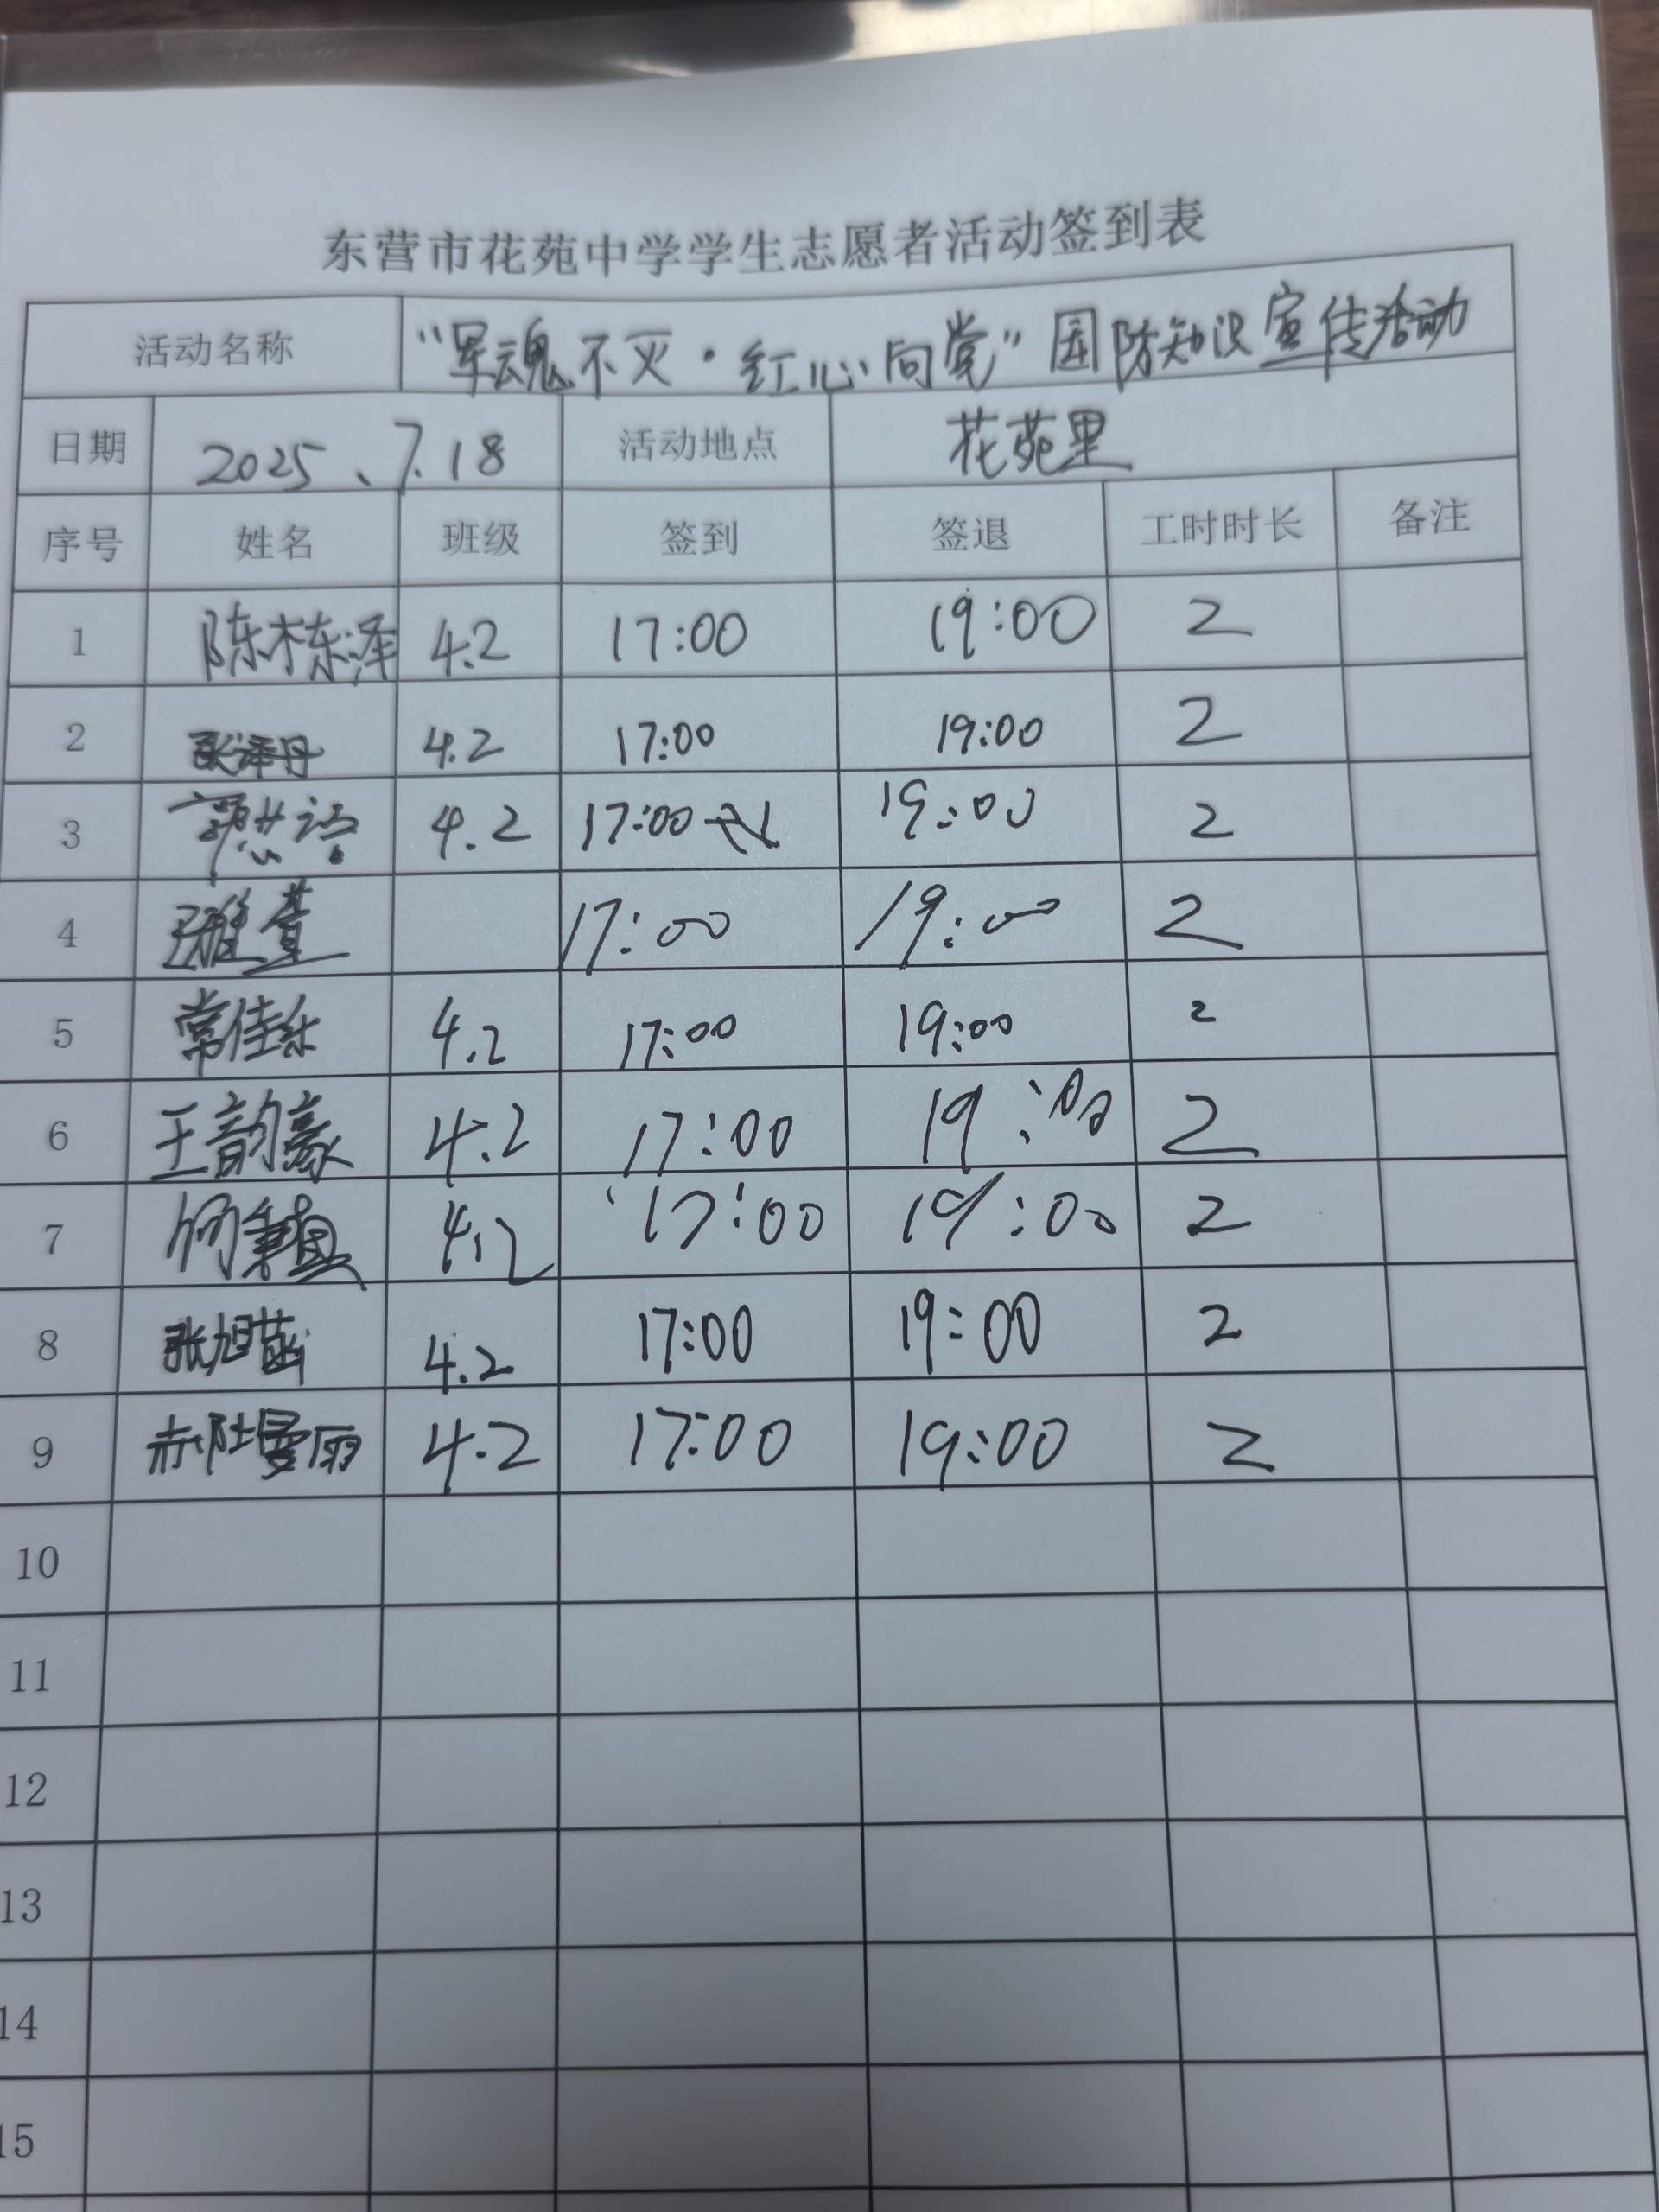 东营市花苑中学学生志愿者活动签到表
活动名称 “军魂不灭·红心向党”国防知识宣传活动
日期 2025、7.18 活动地点 花苑里
序号 姓名 班级 签到 签退 工时时长 备注
1 陈栋泽 4.2 17:00 19:00 2
2 张泽丹 4.2 17:00 19:00 2
3 4.2 17:00 19:00 2
4 17:00 19:00 2
5 常佳乐 4.2 17:00 19:00 2
6 王韵豪 4.2 17:00 19:00 2
7 4.2 17:00 19:00 2
8 张旭菡 4.2 17:00 19:00 2
9 4.2 17:00 19:00 2
10
11
12
13
14
15